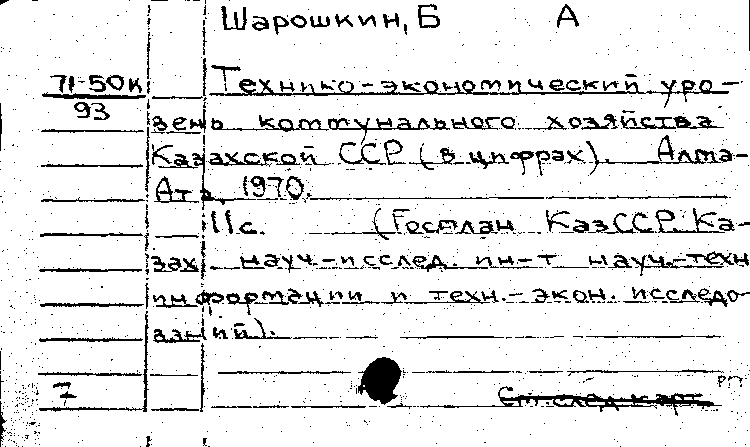 Шарошкин, Б А
71-50к Технико-экономический уро-
93
вень коммунального хозяйства
Казахской ССР (в цифрах). Алма-
Ата, 1970.
11с. (Госплан КазССР. Ка-
зах. науч.-исслед. ин-т науч.-техн
информации и техн.-экон. исследо-
ваний).
7 См. след карт.